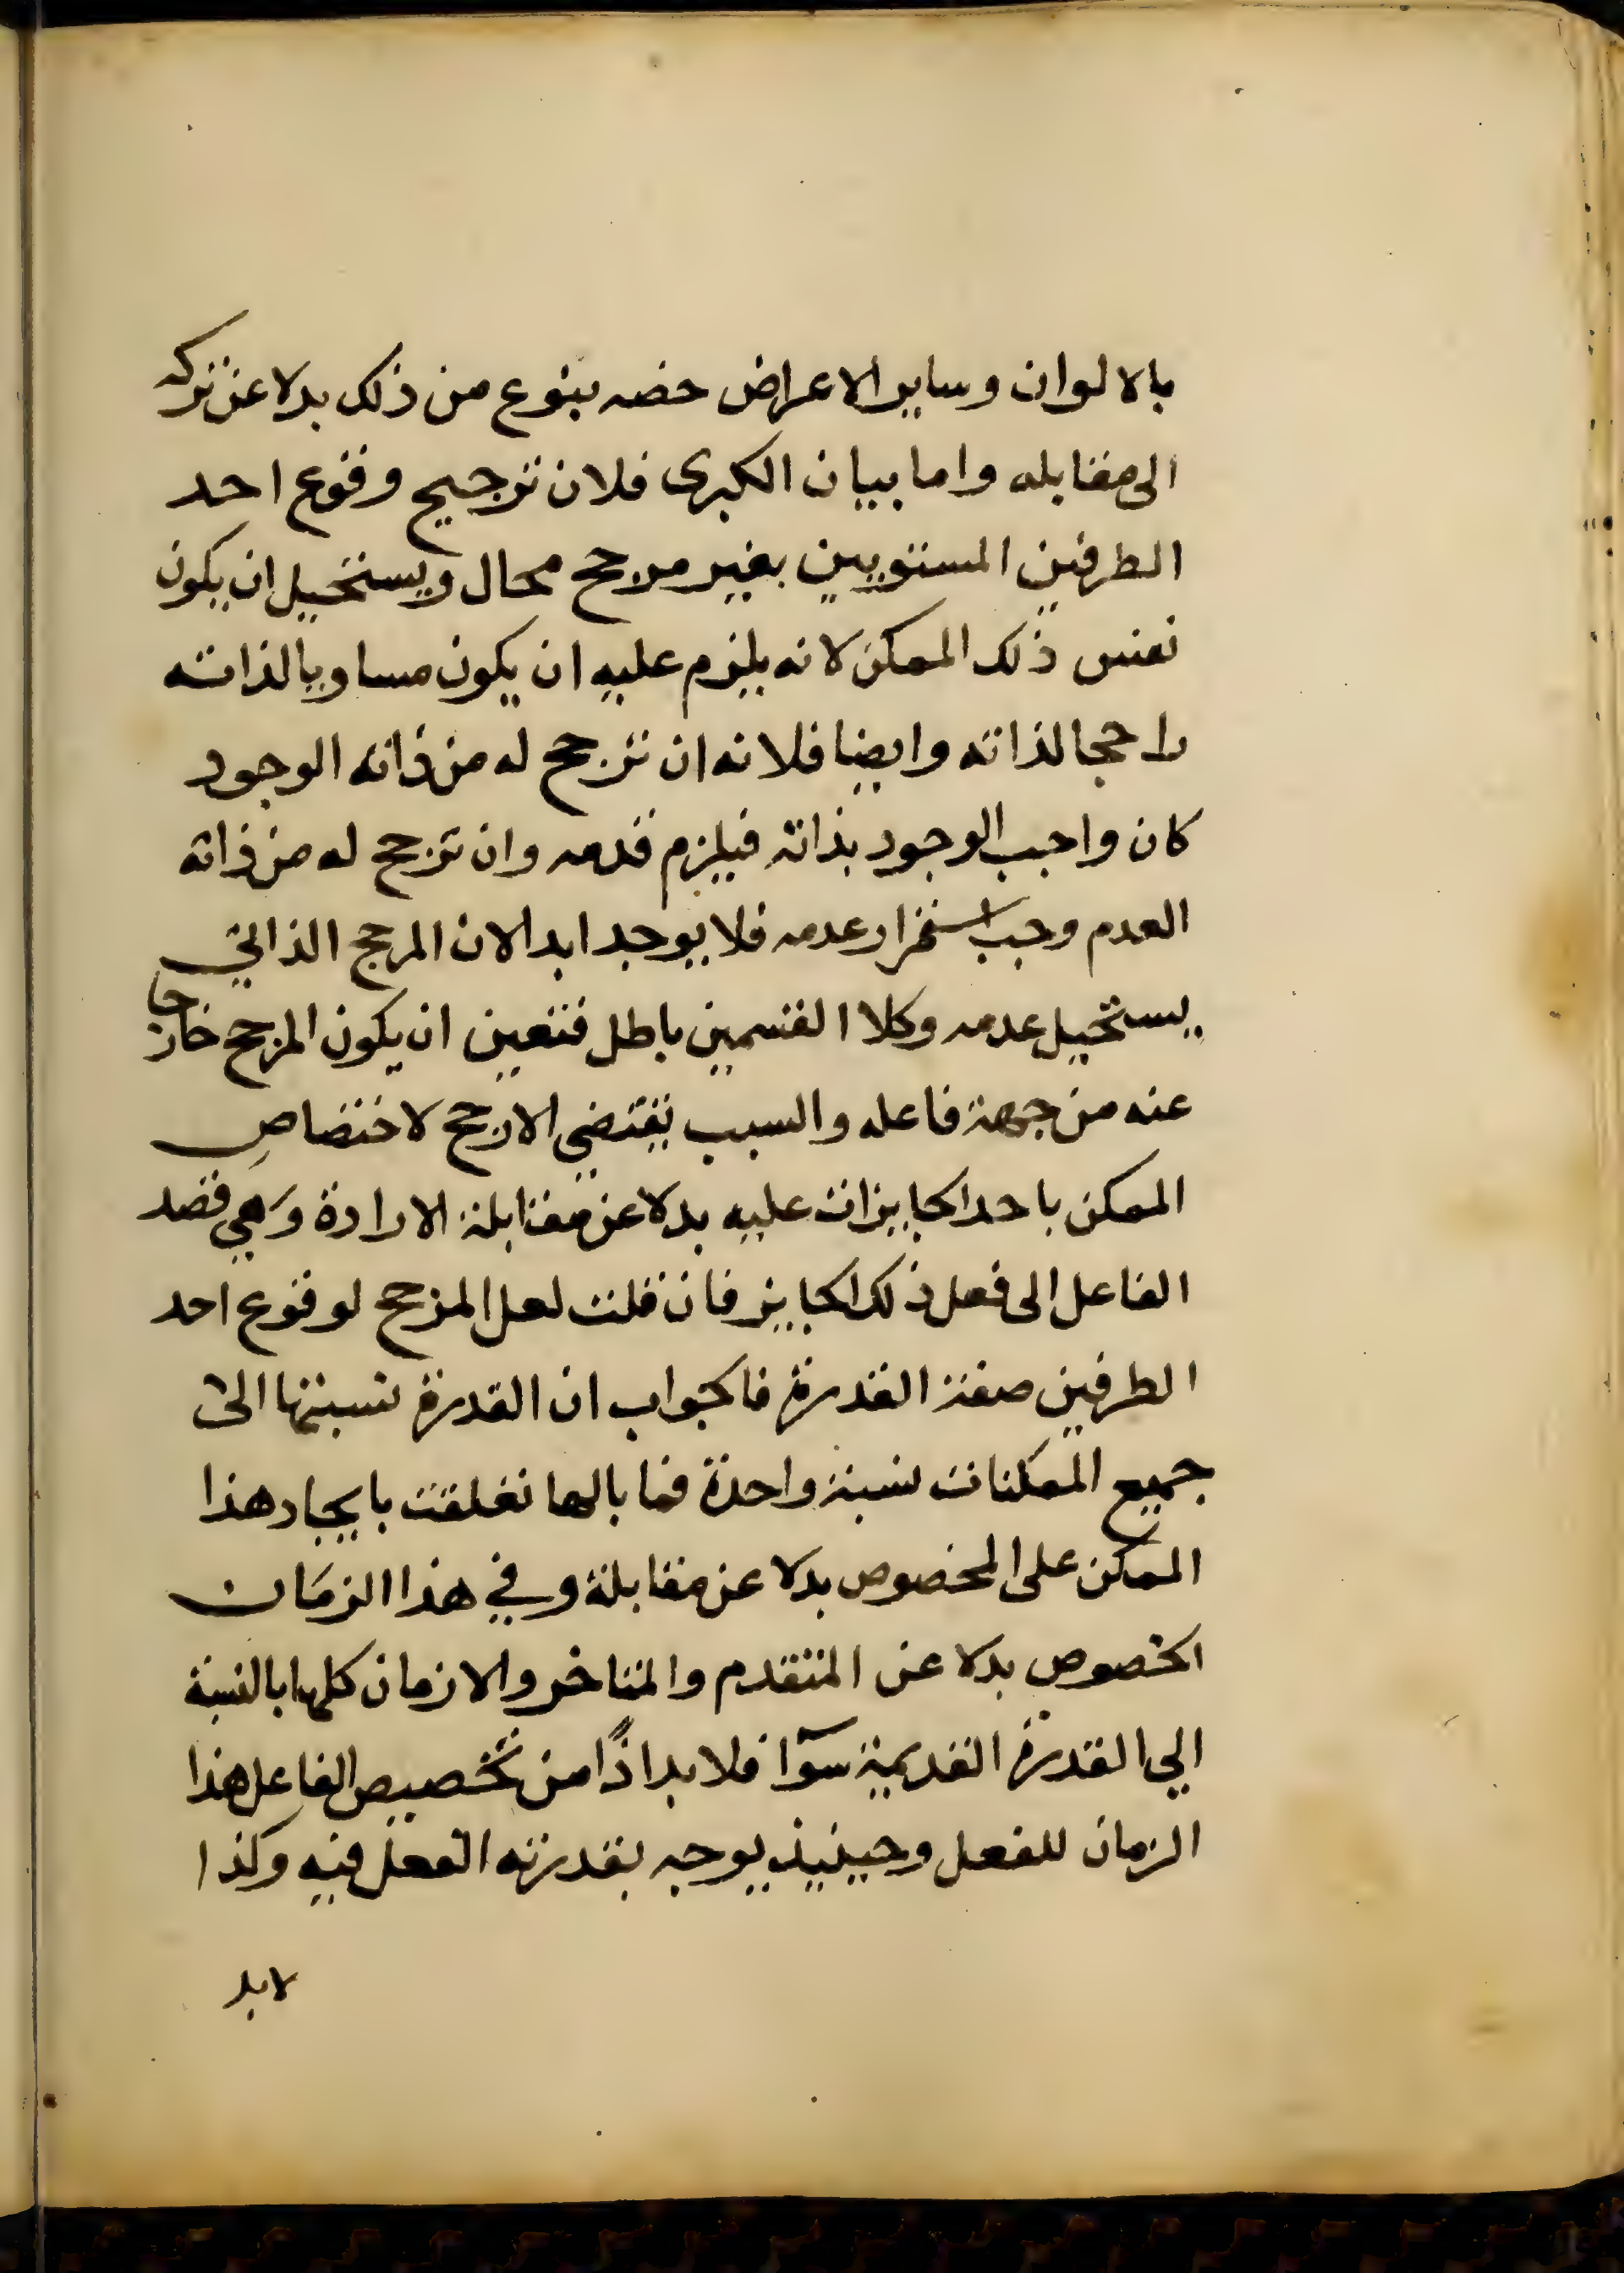 بالالوان وساير الاعراض خصه بنوع من ذلك بدلا عن تركه
الى مقابله واما بيان الكبرى فلان ترجيح وقوع احد
الطرفين المستويين بغير مرجح محال ويستحيل ان يكون
نفس ذلك الممكن لانه يلزم عليه ان يكون مساويا لذاته
راجحا لذاته وايضا فلانه ان ترجح له من ذاته الوجود
كان واجب الوجود بذاته فيلزم قدمه وان ترجح له من ذاته
العدم وجب استمرار عدمه فلا يوجد ابدا لان المرجح الذاتي
يستحيل عدمه وكلا القسمين باطل فتعين ان يكون المرجح خارجا
عنه من جهة فاعله والسبب يقتضي الارجح لاختصاص
الممكن باحد الجايزات عليه بدلا عن مقابلة الارادة وهي قصد
الفاعل الى فعل ذلك الجايز فان قلت لعل المرجح لوقوع احد
الطرفين صفة القدرة فالجواب ان القدرة نسبتها الى
جميع الممكنات نسبة واحدة فما بالها تعلقت بايجاد هذا
الممكن على الخصوص بدلا عن مقابلة وفي هذا الزمان
الخصوص بدلا عن المتقدم والمتاخر والازمان كلها بالنسبة
الي القدرة القديمة سوآ فلا بد اذًا من تخصيص الفاعل هذا
الزمان للفعل وحينيذ يوجه بقدرته الفعل فيه وكذا
لابد